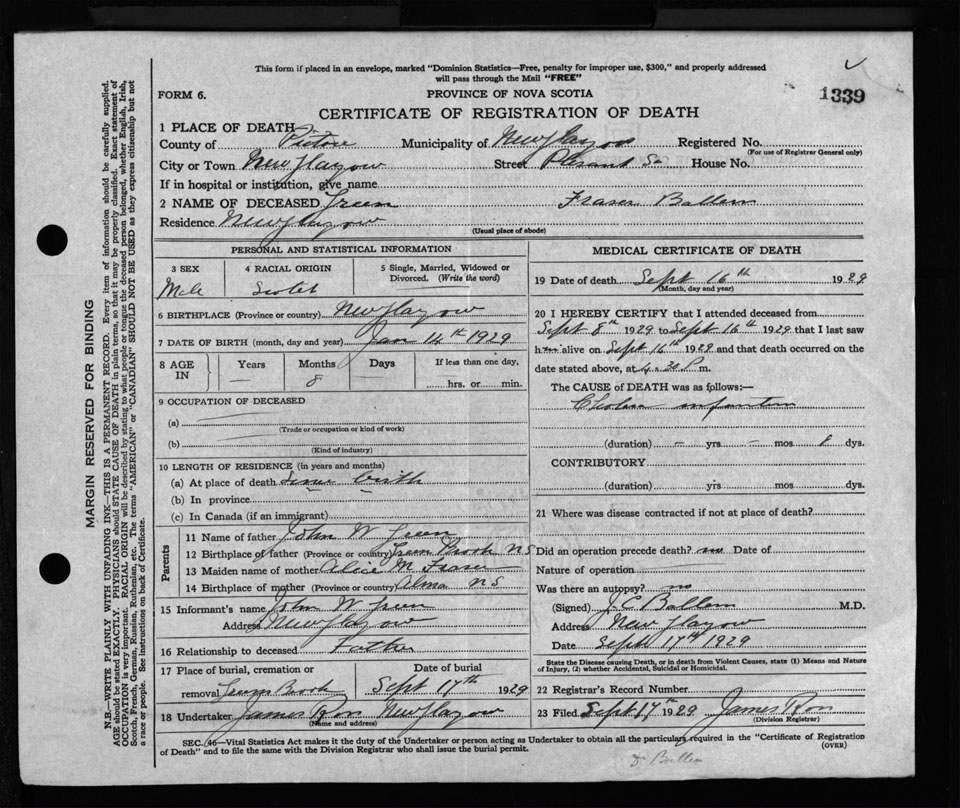 This form if placed in an envelope, marked "Dominion Statistics—Free, penalty for improper use, $300," and properly addressed
will pass through the Mail "FREE"
FORM 6.
PROVINCE OF NOVA SCOTIA
1339
CERTIFICATE OF REGISTRATION OF DEATH
1 PLACE OF DEATH
County of Pictou Municipality of New Glasgow Registered No.
(For use of Registrar General only)
City or Town New Glasgow Street Pleasant St House No.
If in hospital or institution, give name
2 NAME OF DECEASED Green Fraser Ballem
Residence New Glasgow
(Usual place of abode)
PERSONAL AND STATISTICAL INFORMATION
3 SEX 4 RACIAL ORIGIN 5 Single, Married, Widowed or
Divorced. (Write the word)
Male Scotch
6 BIRTHPLACE (Province or country) New Glasgow
7 DATE OF BIRTH (month, day and year) Jan 14th 1929
8 AGE IN Years Months Days If less than one day,
— 8 hrs. or min.
9 OCCUPATION OF DECEASED
(a)
(Trade or occupation or kind of work)
(b)
(Kind of industry)
10 LENGTH OF RESIDENCE (in years and months)
(a) At place of death since birth
(b) In province
(c) In Canada (if an immigrant)
Parents
11 Name of father John W Green
12 Birthplace of father (Province or country) Greens Brook N S
13 Maiden name of mother Alice M Fraser
14 Birthplace of mother (Province or country) Alma N S
15 Informant's name John W Green
Address New Glasgow
16 Relationship to deceased Father
17 Place of burial, cremation or Date of burial
removal Greens Brook Sept 17th 1929
18 Undertaker James Ron New Glasgow
(Name and address)
MEDICAL CERTIFICATE OF DEATH
19 Date of death Sept 16th 1929
(Month, day and year)
20 I HEREBY CERTIFY that I attended deceased from
Sept 8th 1929 to Sept 16th 1929 that I last saw
h alive on Sept 16th 1929 and that death occurred on the
date stated above, at 4.30 P m.
The CAUSE OF DEATH was as follows:—
Cholera infantum
(duration) — yrs — mos 8 dys.
CONTRIBUTORY
(duration) yrs mos dys.
21 Where was disease contracted if not at place of death?
Did an operation precede death? no Date of
Nature of operation
Was there an autopsy? no
(Signed) J. C. Ballem M.D.
Address New Glasgow
Date Sept 17th 1929
State the Disease causing Death, or in death from Violent Causes, state (1) Means and Nature
of Injury, (2) whether Accidental, Suicidal or Homicidal.
22 Registrar's Record Number
23 Filed Sept 17 1929 James Ron
(Division Registrar)
SEC. 46—Vital Statistics Act makes it the duty of the Undertaker or person acting as Undertaker to obtain all the particulars required in the "Certificate of Registration
of Death" and to file the same with the Division Registrar who shall issue the burial permit.
(OVER)
Dr Ballem
MARGIN RESERVED FOR BINDING
N.B.—WRITE PLAINLY WITH UNFADING INK—THIS IS A PERMANENT RECORD. Every item of information should be carefully supplied.
AGE should be stated EXACTLY. PHYSICIANS should STATE CAUSE OF DEATH in plain terms, so that it may be properly classified. Exact statement of
OCCUPATION is very important. RACIAL ORIGIN will be described by stating to what people or tongue the deceased person belonged, whether English, Irish,
Scotch, French, German, Russian, Ruthenian, etc. The terms "AMERICAN" or "CANADIAN" SHOULD NOT BE USED as they express citizenship but not
a race or people. See instructions on back of Certificate.